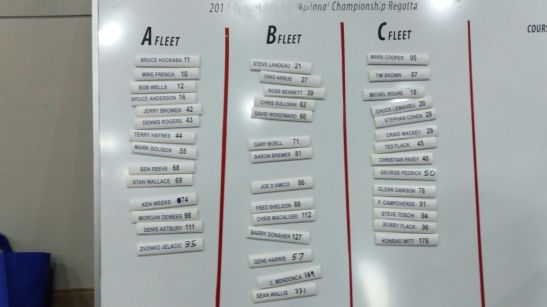 National Championship Regatta
A FLEET
BRUCE HUCKABA 11
MIKE FRENCH 10
BOB WELLS 12
BRUCE ANDERSON 16
JERRY BROWER 42
DENNIS ROGERS 43
TERRY HAYNES 44
MARK GOLISON 55
BEN REEVE 68
STAN WALLACE 69
KEN WEEKS 74
MORGAN DEWEES 98
DENIS ASTBURY 111
ZVONKO JELACIC 35
B FLEET
STEVE LANDEAU 21
GINO ARRUE 27
ROSS BENNETT 39
CHRIS SULLIVAN 62
DAVID WOODWARD 66
GARY BOELL 71
BARON BREMER 81
JOE D'AMICO 86
FRED SHELDON 88
CHRIS MACALUSO 112
BARRY DONAHER 127
GENE HARRIS 57
C. MENDONCA 169
SEAN WALLIS 771
C FLEET
MARK COOPER 05
TIM BROWN 07
MICHEL ROURE 18
CHUCK LEMAHIEU 20
STEPHAN COHEN 28
CRAIG MACKEY 29
TED FLACK 45
CHRISTIAN PAVEY 48
GEORGE PEDRICK 50
GLENN DAWSON 76
F. CAMPOVERDE 91
STEVE TOSCHI 94
BOBBY FLACK 96
KONRAD WITT 179
COURS